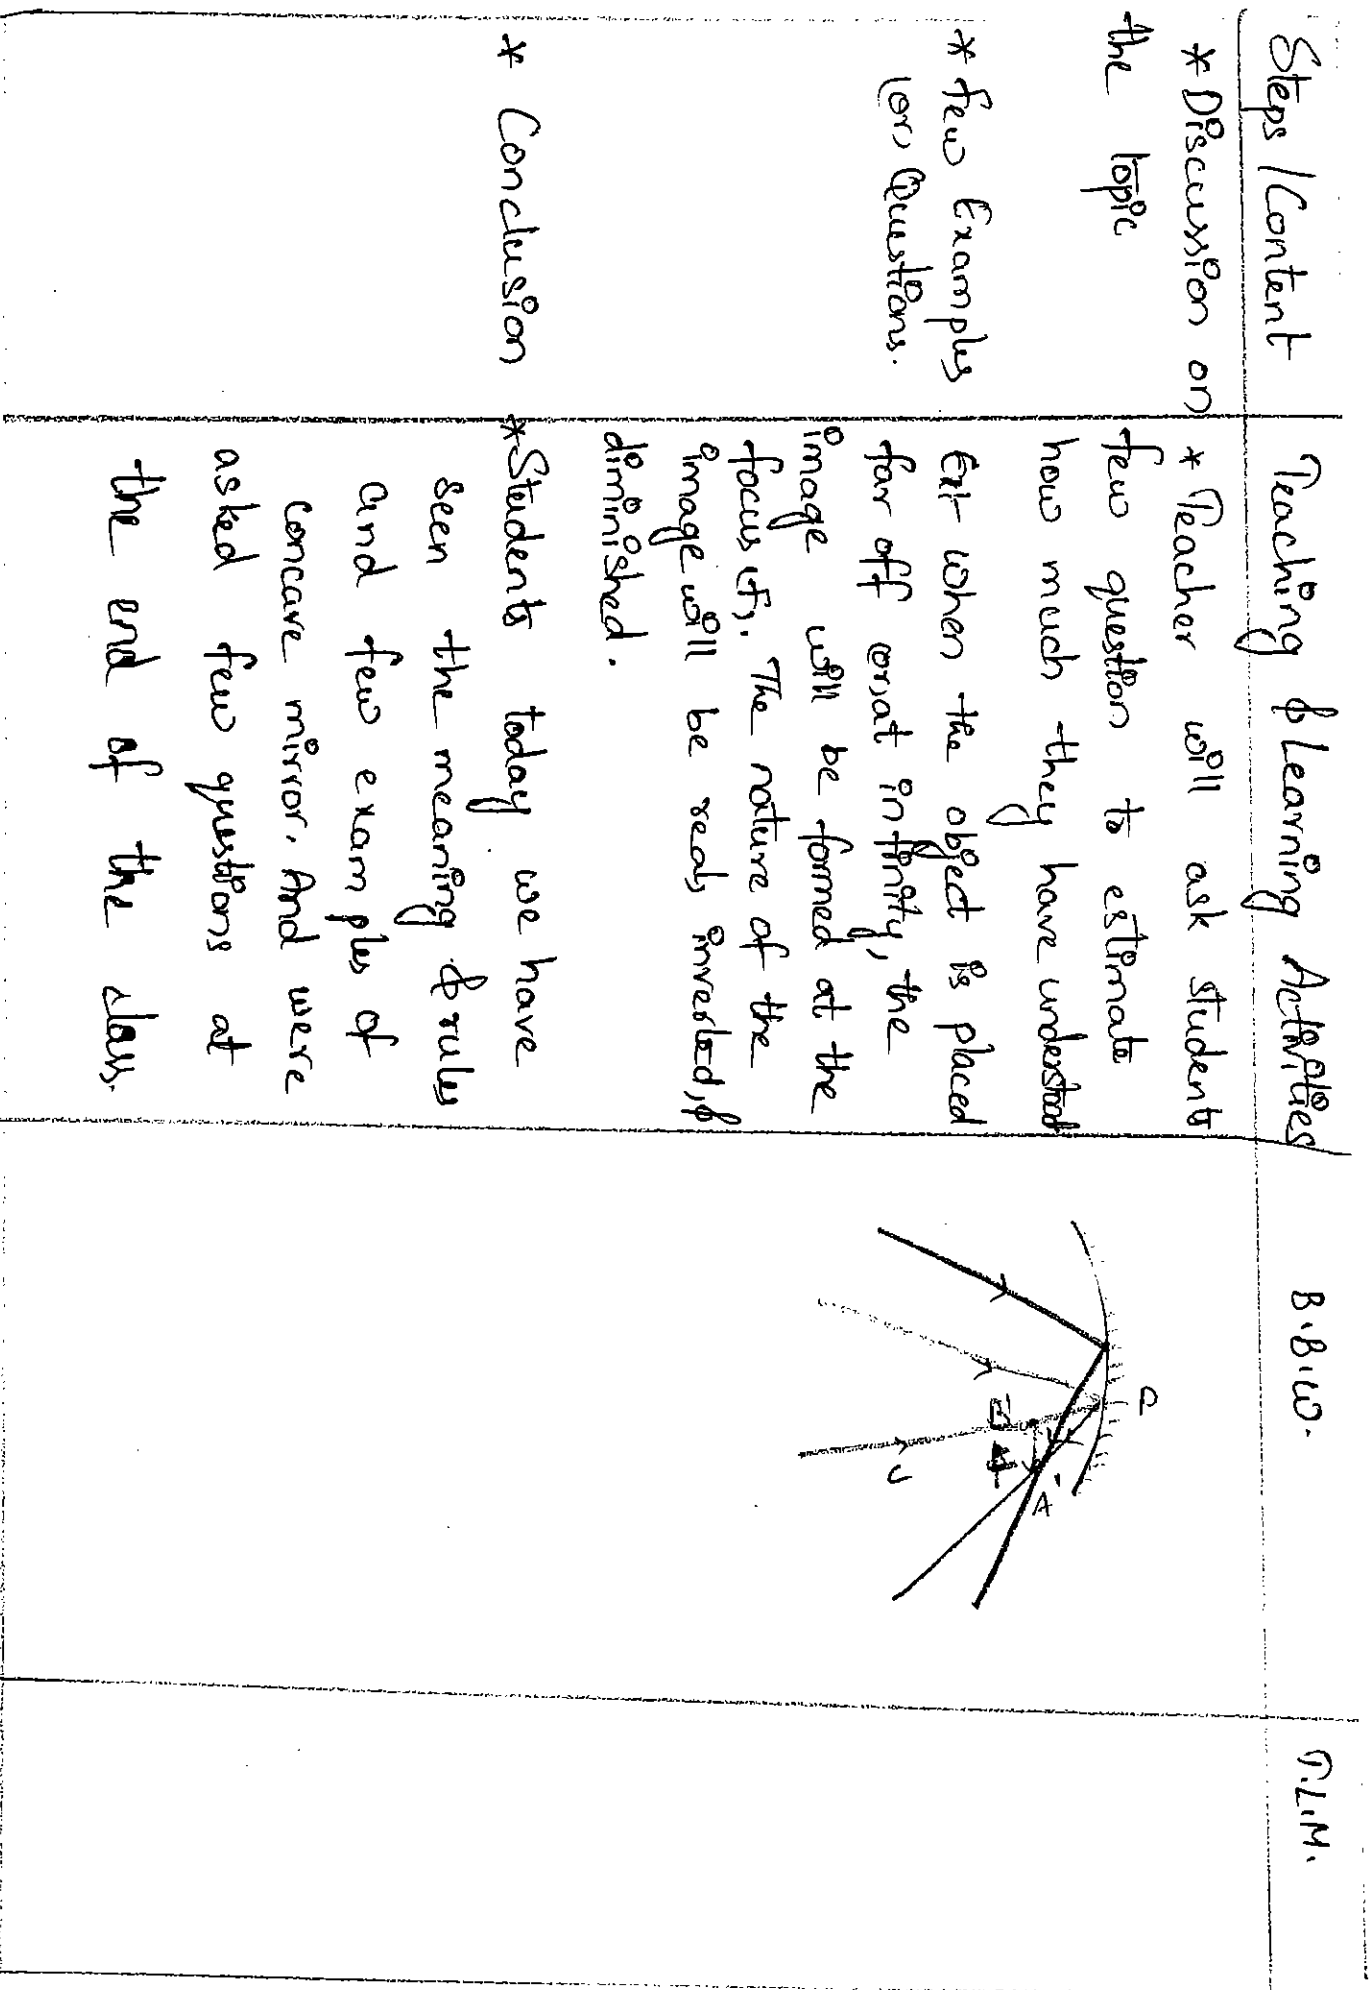 Steps / Content
Teaching & Learning Activities
B.B.W.
T.L.M.
* Discussion on
the topic
* few Examples
(or) Questions.
* Conclusion
* Teacher will ask students
few question to estimate
how much they have understood
Ex:- when the object is placed
far off (or) at infinity, the
image will be formed at the
focus (F). The nature of the
image will be real, inverted, &
diminished.
* Students today we have
seen the meaning & rules
and few examples of
concave mirror. And were
asked few questions at
the end of the class.
A'